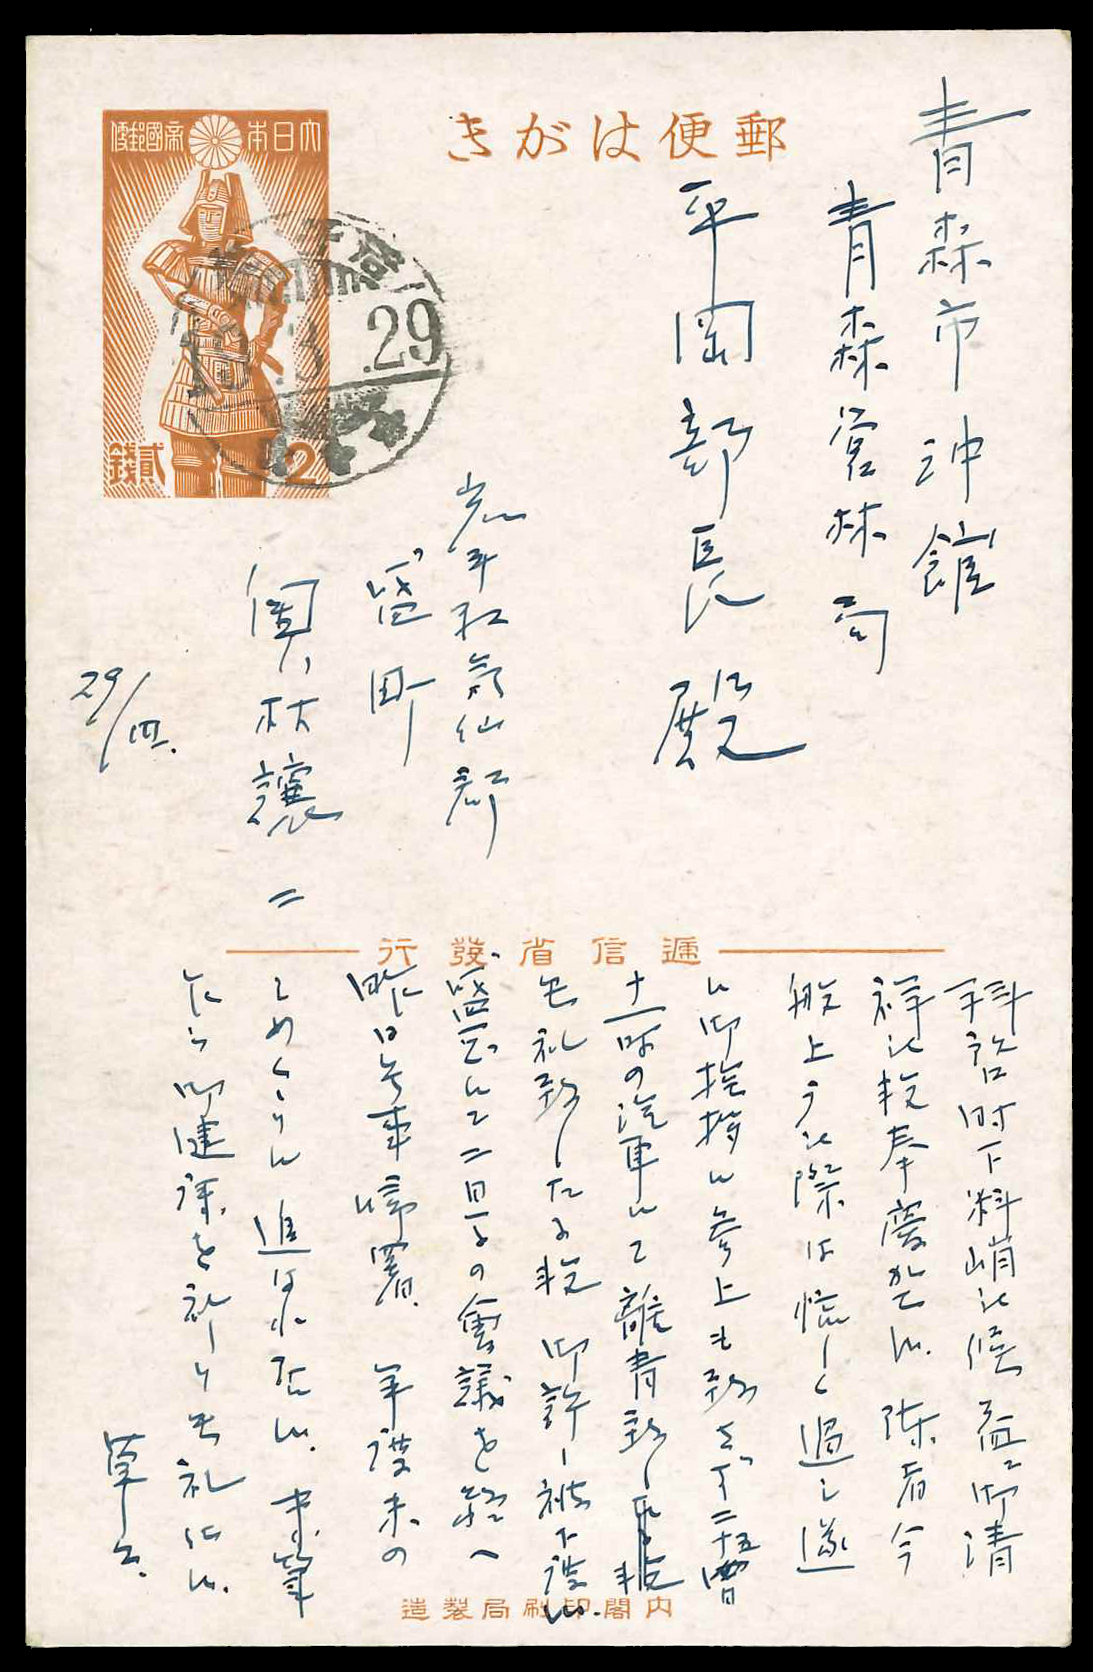 郵便はがき
大日本帝國郵便
貳錢
2
29
青森市沖館
青森営林局
平岡部長殿
岩手縣気仙郡
盛町
奥村譲二
29/Ⅲ.
逓信省發行
拝啓時下料峭の候益々御清
祥の段奉慶賀候。陳者今
般上京の際は慌しく過し遂
に御挨拶に参上も致さず二十五曜
十一時の汽車にて離青致し
欠礼致したる段御許し被下度候。
盛岡にて二日にて二日の会議を終へ
昨日無事帰署 年度末の
しめくくりに追はれ居候。末筆
乍ら御健康を祈り御礼申候。
草々
内閣印刷局製造